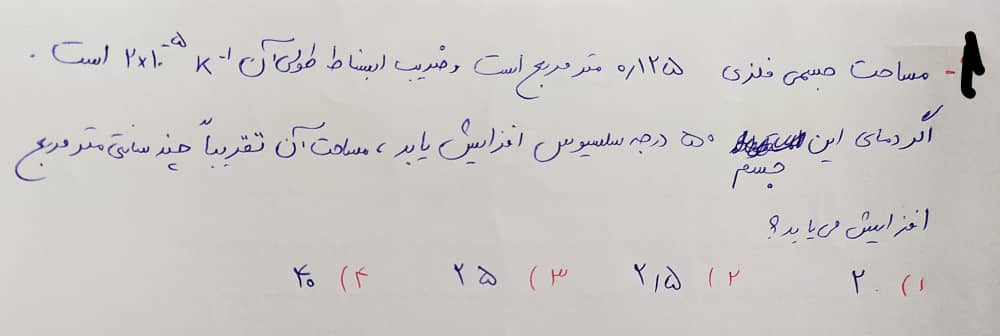 ۱- مساحت جسمی فلزی ۰٫۱۲۵ متر مربع است و ضریب انبساط طولی آن ۲×۱۰⁻⁵ K⁻¹ است.
اگر دمای این جسم ۵۰ درجه سلسیوس افزایش یابد، مساحت آن تقریباً چند سانتی متر مربع
افزایش می یابد؟
۱) ۲۰ ۲) ۲٫۵ ۳) ۲۵ ۴) ۴۰